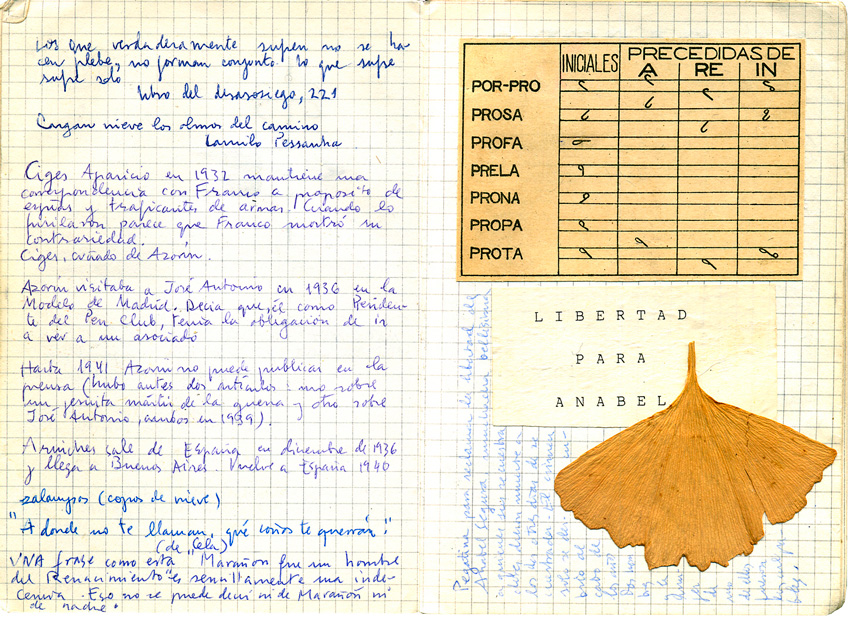 Los que verdaderamente supen no se ha-
cen plebe, no forman conjunto. Lo que supe
supe solo
Libro del desasosiego, 221
Cargan nieve los olmos del camino
Camilo Pessanha
Ciges Aparicio en 1932 mantiene una
correspondencia con Franco a proposito de
espías y traficantes de armas. Cuando lo
fusilaron parece que Franco mostró su
contrariedad.
Ciges, cuñado de Azorín.
Azorín visitaba a José Antonio en 1936 en la
Modelo de Madrid. Decía que, él como Presiden-
te del Pen Club, tenía la obligación de ir
a ver a un asociado
Hasta 1941 Azorín no puede publicar en la
prensa (hubo antes dos artículos: uno sobre
un jesuita mártir de la guerra y otro sobre
José Antonio, ambos en 1939).
Arniches sale de España en diciembre de 1936
y llega a Buenos Aires. Vuelve a España 1940
zalampos (copos de nieve)
"A donde no te llaman, qué coños te querrán!"
(de Cela)
UNA frase como esta "Marañon fue un hombre
del Renacimiento" es sencillamente una inde-
cencia. Eso no se puede decir ni de Marañón ni
de nadie.
PRECEDIDAS DE
INICIALES A RE IN
POR-PRO
PROSA
PROFA
PRELA
PRONA
PROPA
PROTA
LIBERTAD
PARA
ANABEL
Pegatina para reclamar la libertad de
Anabel Segura, muchacha bellísima